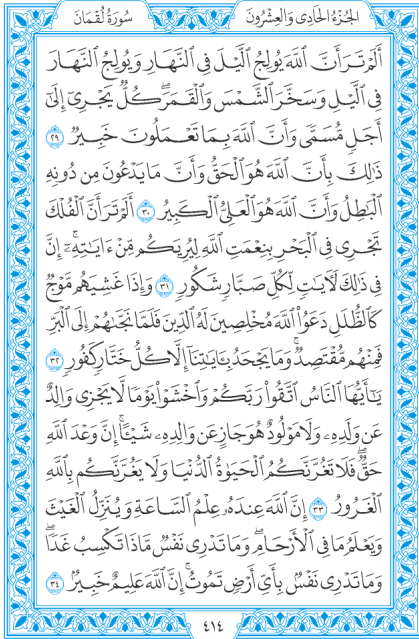 الجُزْءُ الحَادِى وَالعِشْرُونَ
سُورَةُ لُقْمَان
أَلَمْ تَرَ أَنَّ ٱللَّهَ يُولِجُ ٱلَّيْلَ فِى ٱلنَّهَارِ وَيُولِجُ ٱلنَّهَارَ
فِى ٱلَّيْلِ وَسَخَّرَ ٱلشَّمْسَ وَٱلْقَمَرَۖ كُلٌّ يَجْرِىٓ إِلَىٰٓ
أَجَلٍ مُّسَمًّى وَأَنَّ ٱللَّهَ بِمَا تَعْمَلُونَ خَبِيرٌ ٢٩
ذَٰلِكَ بِأَنَّ ٱللَّهَ هُوَ ٱلْحَقُّ وَأَنَّ مَا يَدْعُونَ مِن دُونِهِ
ٱلْبَٰطِلُ وَأَنَّ ٱللَّهَ هُوَ ٱلْعَلِىُّ ٱلْكَبِيرُ ٣٠ أَلَمْ تَرَ أَنَّ ٱلْفُلْكَ
تَجْرِى فِى ٱلْبَحْرِ بِنِعْمَتِ ٱللَّهِ لِيُرِيَكُم مِّنْ ءَايَٰتِهِۦٓۚ إِنَّ
فِى ذَٰلِكَ لَءَايَٰتٍ لِّكُلِّ صَبَّارٍ شَكُورٍ ٣١ وَإِذَا غَشِيَهُم مَّوْجٌ
كَٱلظُّلَلِ دَعَوُا۟ ٱللَّهَ مُخْلِصِينَ لَهُ ٱلدِّينَ فَلَمَّا نَجَّىٰهُمْ إِلَى ٱلْبَرِّ
فَمِنْهُم مُّقْتَصِدٌۚ وَمَا يَجْحَدُ بِـَٔايَٰتِنَآ إِلَّا كُلُّ خَتَّارٍ كَفُورٍ ٣٢
يَٰٓأَيُّهَا ٱلنَّاسُ ٱتَّقُوا۟ رَبَّكُمْ وَٱخْشَوْا۟ يَوْمًا لَّا يَجْزِى وَالِدٌ
عَن وَلَدِهِۦ وَلَا مَوْلُودٌ هُوَ جَازٍ عَن وَالِدِهِۦ شَيْـًٔاۚ إِنَّ وَعْدَ ٱللَّهِ
حَقٌّۖ فَلَا تَغُرَّنَّكُمُ ٱلْحَيَوٰةُ ٱلدُّنْيَا وَلَا يَغُرَّنَّكُم بِٱللَّهِ
ٱلْغَرُورُ ٣٣ إِنَّ ٱللَّهَ عِندَهُۥ عِلْمُ ٱلسَّاعَةِ وَيُنَزِّلُ ٱلْغَيْثَ
وَيَعْلَمُ مَا فِى ٱلْأَرْحَامِۖ وَمَا تَدْرِى نَفْسٌ مَّاذَا تَكْسِبُ غَدًاۖ
وَمَا تَدْرِى نَفْسٌۢ بِأَىِّ أَرْضٍ تَمُوتُۚ إِنَّ ٱللَّهَ عَلِيمٌ خَبِيرٌۢ ٣٤
٤١٤